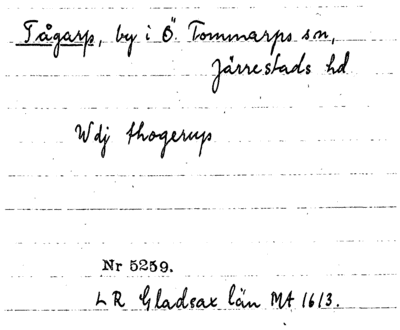 Tågarp, by i Ö. Tommarps sn,
Järrestads hd
Wdj thogerup
Nr 5259.
LR Gladsax län MA 1613.